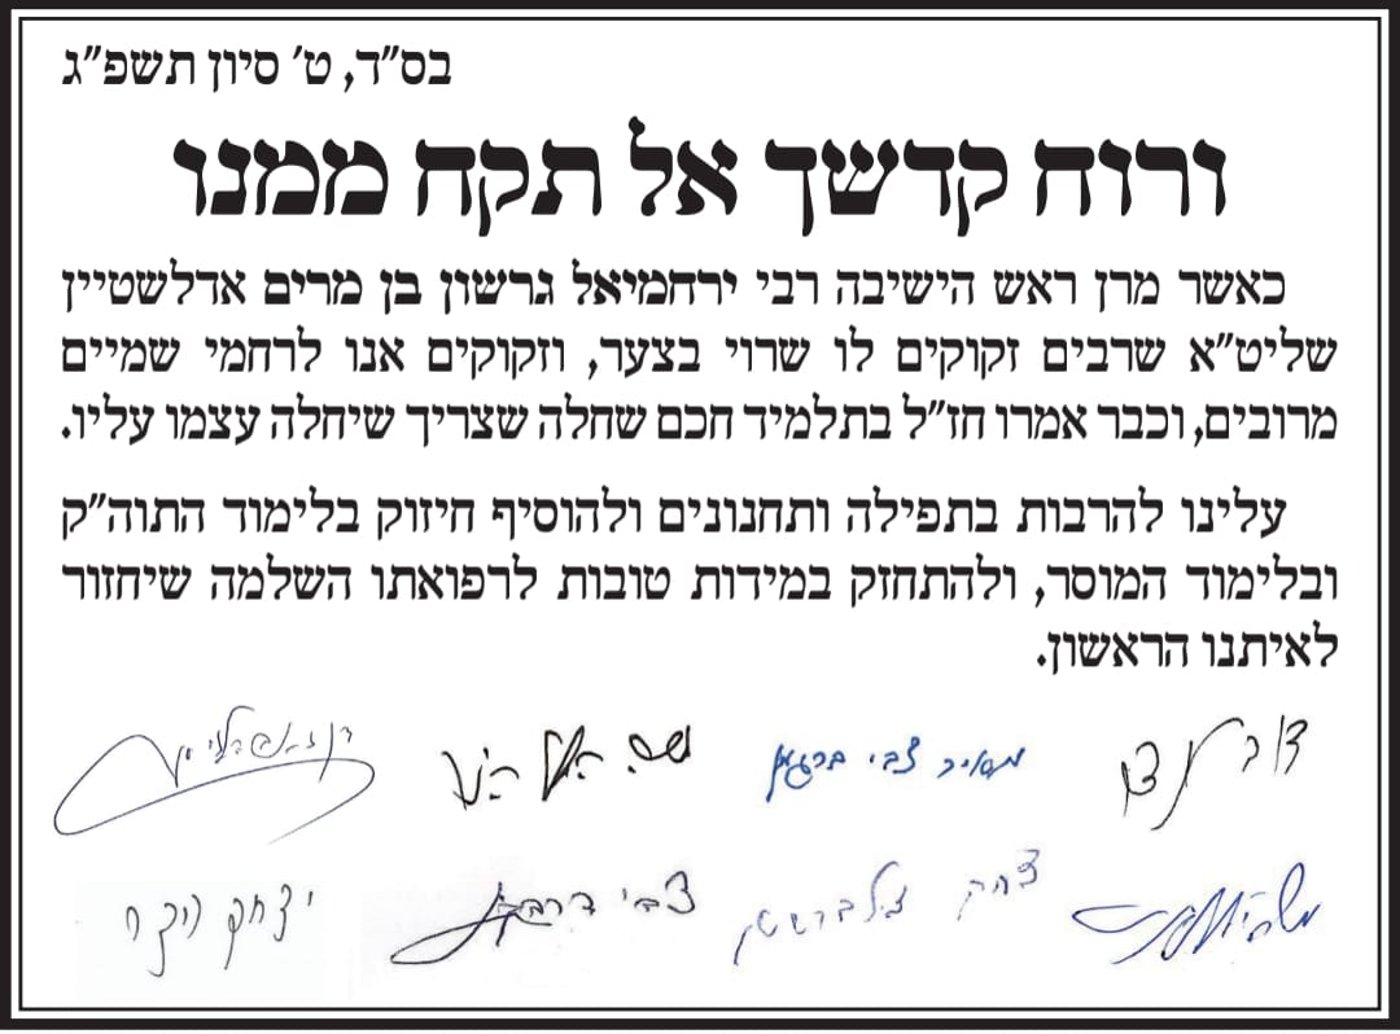 בס"ד, ט' סיון תשפ"ג
ורוח קדשך אל תקח ממנו
כאשר מרן ראש הישיבה רבי ירחמיאל גרשון בן מרים אדלשטיין
שליט"א שרבים זקוקים לו שרוי בצער, וזקוקים אנו לרחמי שמיים
מרובים, וכבר אמרו חז"ל בתלמיד חכם שחלה שצריך שיחלה עצמו עליו.
עלינו להרבות בתפילה ותחנונים ולהוסיף חיזוק בלימוד התוה"ק
ובלימוד המוסר, ולהתחזק במידות טובות לרפואתו השלמה שיחזור
לאיתנו הראשון.
דב לנדו מאיר צבי ברגמן
יצחק זילברשטיין צבי